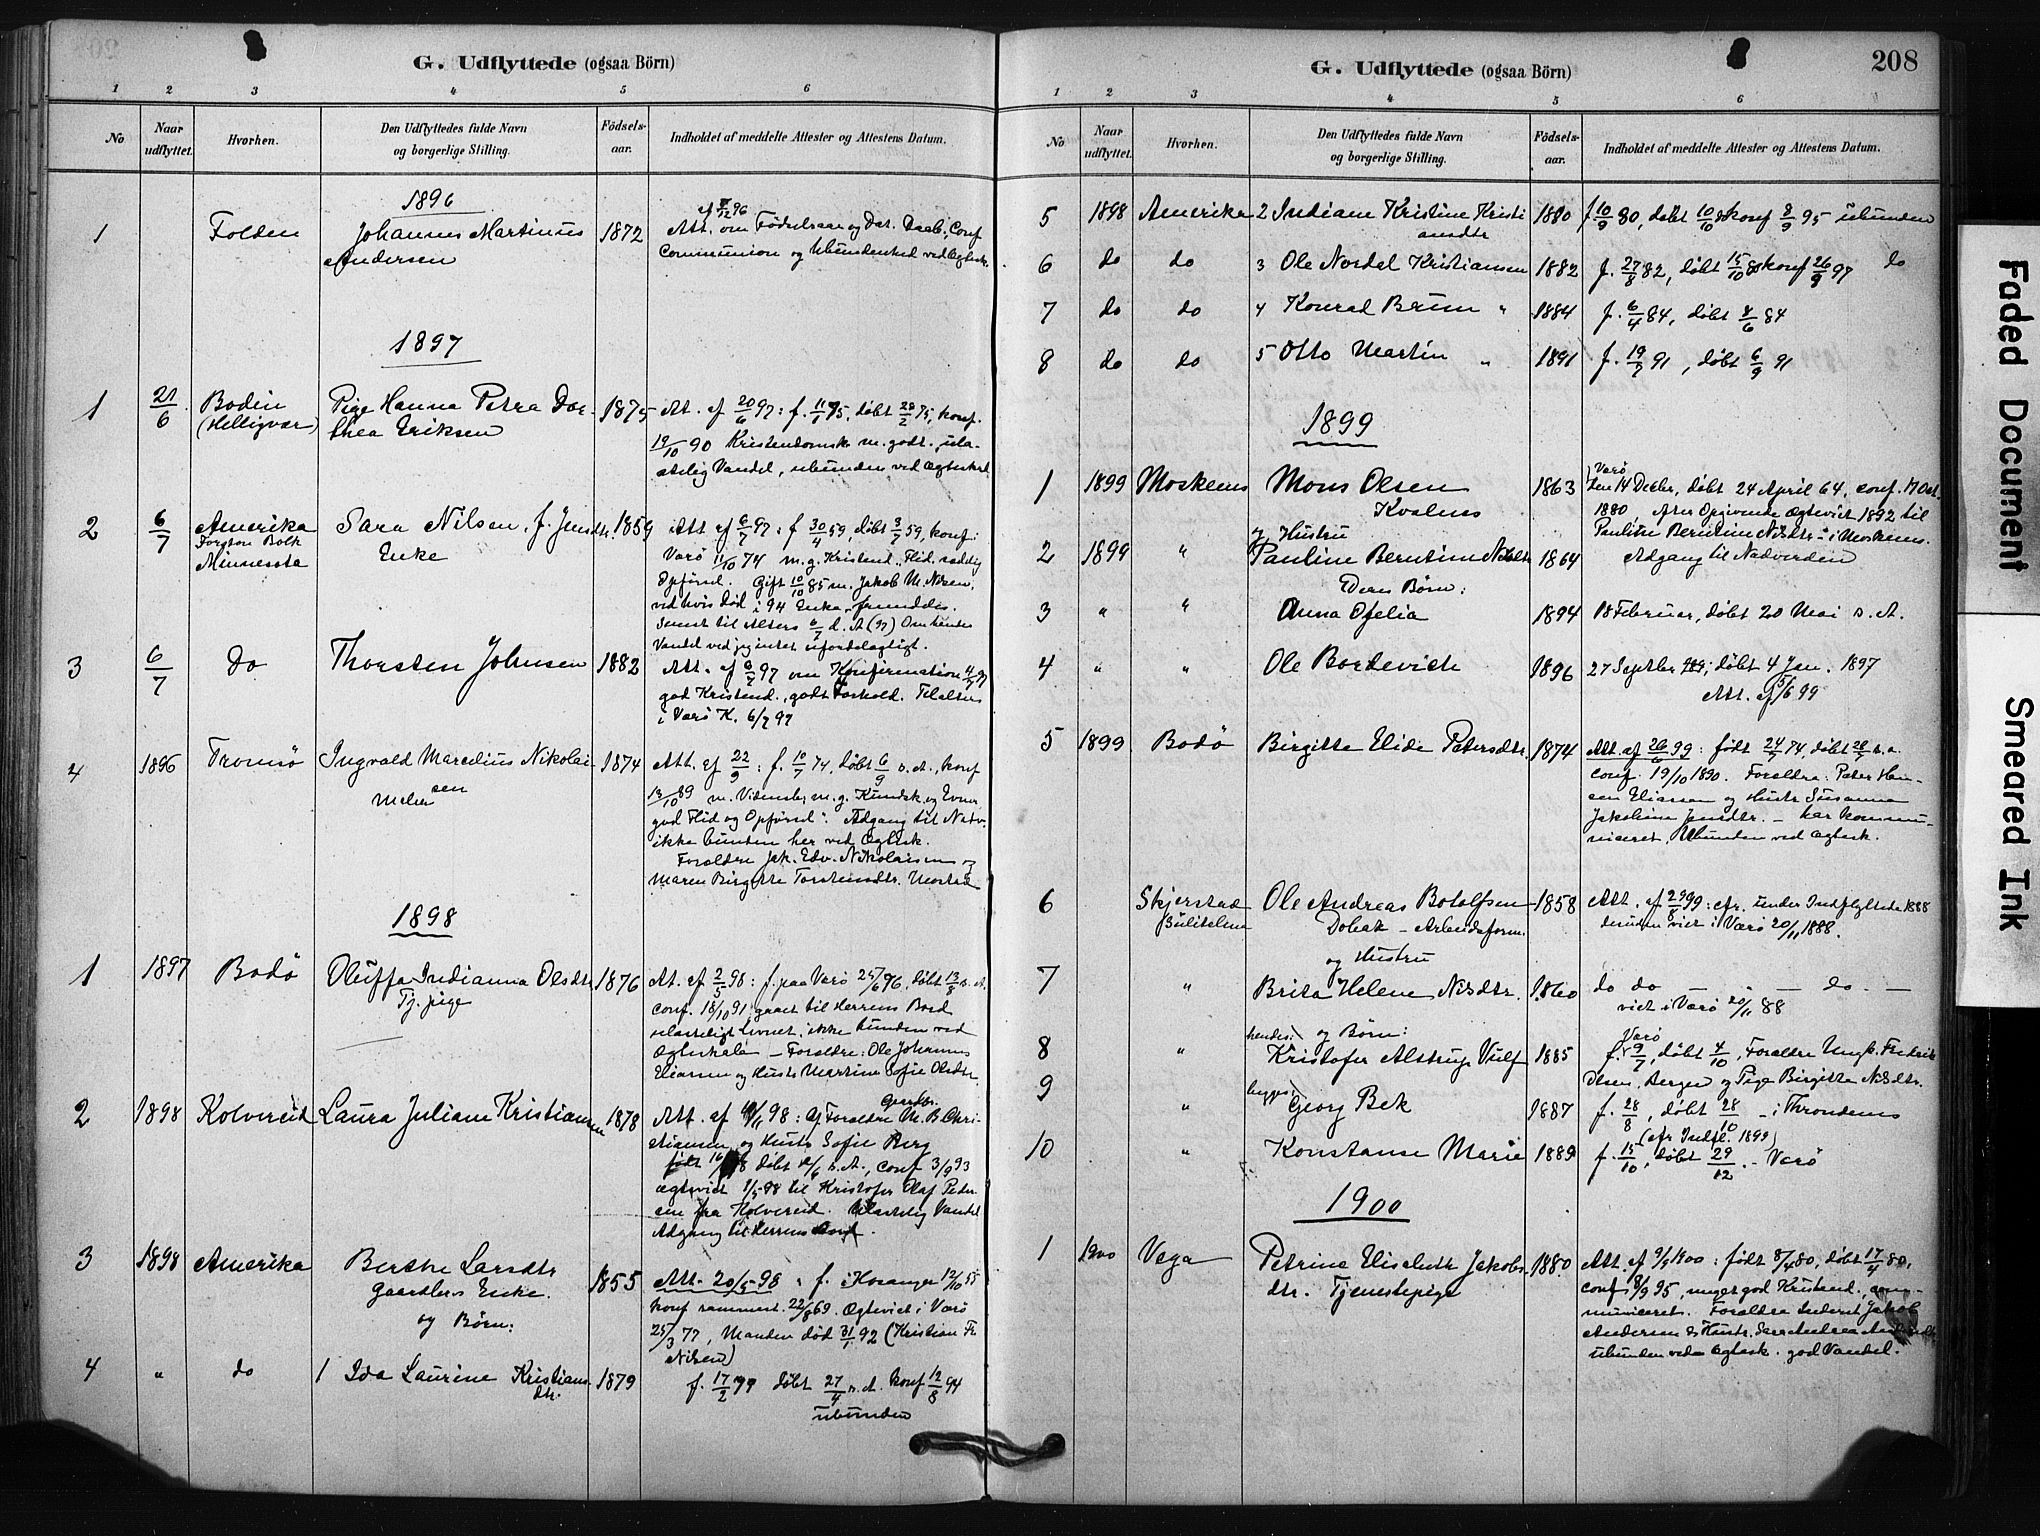 G. Udflyttede (ogsaa Börn)
1 2 3 4 5 6
No
Naar udflyttet.
Hvorhen.
Den Udflyttedes fulde Navn og borgerlige Stilling.
Födsels-aar.
Indholdet af meddelte Attester og Attestens Datum.
1896
1 Folden Johannes Martinus 1872 Att. om Födselsaar og Dat. Daab, Conf
Andersen Communion og Ubundenhed ved Ægtesk.
1897
1 21/6 Bodin Pige Hanna Petra Dor- 1875 At. af 20/6 97: f. 11/1 75, döbt 28/2 75, konf.
(Helligvær) thea Eriksen 19/10 90 Kristendomsk. m. godt, ula-
stelig Vandel, ubunden ved Ægtesk
2 6/7 Amerika Sara Nilsen, f. Jensdtr. 1859 Att af 6/7 97: f 30/4 59, döbt 3/7 59, konf:
Minnesota Enke Værö 11/10 74 m. g. Kristend., Flid, sædelig
Opförsel. Gift 10/10 85 m. Jakob M. Nilsen,
ved hvis Död i 94 Enke
Senest til Alters 6/7 d. A (97) Om hendes
Vandel ved jeg intet ufordelagtigt.
3 6/7 do Thorsten Johnsen 1882 Att. af 6/7 97 om Konfirmation 4/7 97
god Kristend., godt Forhold. Til alters
i Værö K. 6/7 97
4 1896 Tromsö Ingvald Marcelius Nikolai- 1874 Att. af 22/9: f. 10/7 74, döbt 6/9 s. A., konf
sen 13/10 89 m. Vidnesb. m. g. Kundsk. og Evner,
Maler god Flid og Opförsel. Adgang til Nadv.
ikke bunden her ved Ægtesk.
Forældre Jak. Edv. Nikolaisen og
Maren Birgitte Torstensdtr. Mostad
1898
1 1897 Bodö Oluffa Indianna Olsdtr 1876 At. af 2/5 98: f. paa Værö 25/6 76, döbt 13/8 s. A.
Tj. pige conf. 18/10 91, gaaet til Herrens Bord
ulasteligt Levnet, ikke bunden ved
Ægteskab – Forældre: Ole Johannes
Eliassen og Hustr Martine Sofie Olsdtr
2 1898 Kolvereid Laura Juliane Kristiansen 1878 Att. af 98: Af Forældre M. B. Chri-
stiansen og Hustr Sofie Berg
födt döbt s. A., conf 3/9 93
ægteviet 98 til Kristofer Olaf Peter-
sen fra Kolvereid. Ulastelig Vandel
Adgang til Herrens Bord.
3 1898 Amerika Berthe Larsdtr 1855 Att. 20/5-98. f. i 12/10 55
Gaardbrs Enke. konf sammest. 22/8 69. Ægteviet i Værö
og Börn: 25/3 77, Manden död 31/1 92 (Kristian Fr.
Nilsen)
4 " do 1 Ida Laurine Kristians- 1879 f. 17/2 79 döbt 27/4 s. A. konf 12/8 94
dtr. ubunden
G. Udflyttede (ogsaa Börn)
208
1 2 3 4 5 6
No
Naar udflyttet.
Hvorhen.
Den Udflyttedes fulde Navn og borgerlige Stilling.
Födsels-aar.
Indholdet af meddelte Attester og Attestens Datum.
5 1898 Amerika 2 Indiane Kristine Kristi 1880 f 10/9 80, döbt 10/10 80 konf 8/9 95 ubunden
ansdtr
6 do do 3 Ole Nordal Kristiansen 1882 f. 27/8 82, döbt 15/10 82 konf 26/9 97 do
7 do do 4 Konrad Brun " 1884 f. 6/4 84, döbt 8/6 84
8 do do 5 Otto Martin " 1891 f. 19/7 91, döbt 6/9 91
1899
1 1899 Moskenes Mons Olsen 1863 Værö
Kvalnes den 14 Decbr, döbt 24 April 64, conf. 17 Oct.
1880 Efter Opgivende Ægteviet 1892 til
Pauline Berntine Nilsdtr – i Moskenes.
og Hustru
2 1899 " Pauline Berntine Nilsdtr 1864 Adgang til Nadverden
Deres Börn:
3 " " Anna Ofelia 1894 18 Februar, döbt 20 Mai s. A.
4 " " Ole Bordevich 1896 27 Septbr döbt 4 Jan. 1897
Att. af 5/6 99
5 1899 Bodö Birgitte Elide Petersdtr 1874 Att. af 26/6 99: födt 24/7 74, döbt s. a.
conf. 19/10 1890. Forældre: Peter Han-
sen Eliassen og Hustr Susanna
Jakobine Jensdtr. – har kommu-
niceret, Ubunden ved Ægtesk.
6 Skjerstad Ole Andreas Botolfsen 1858 Att. af 99: cfr. under Indflyttede 1888
Sulitelma Dobak – Arbeidsform. viet i Værö 20/11 1888.
og Hustru
7 " Brita Helene Nilsdtr. 1860 do do – do –
viet i Værö 20/11 88
hendes og Börn: Værö
8 " Kristofer Alstrup Vulf 1885 f. 9/7, döbt 4/10, Forældre Ungk. Fredrik
Olsen, Bergen og Pige Birgitte Nilsdtr.
9 begges " Georg Bek 1887 f. 28/8, döbt 28/10 – i Throndenes
(cfr Indfl. 1899)
10 " Konstanse Marie 1889 f. 15/10, döbt 29/12. – Værö
1900
1 1900 Vega Petrine Elisabeth Jakobs- 1880 Att. af 9/5 1900: födt 8/4 80, döbt 17/4 80,
dtr. Tjenestepige conf 8/9 95, meget god Kristend., com-
municeret. Forældre Inderst Jakob
Andersen & Hustr.
ubunden ved Ægtesk. god Vandel.
Faded Document
Smeared Ink